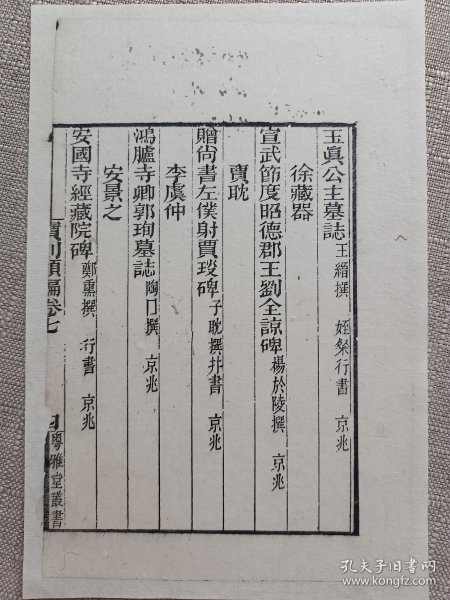 玉真公主墓誌 王縉撰 姪粲行書 京兆
徐藏器
宣武節度昭德郡王劉全諒碑 楊於陵撰 京兆
賈耽
贈尚書左僕射賈琰碑 子耽撰并書 京兆
李虞仲
鴻臚寺卿郭珣墓誌 陶 撰 京兆
安景之
安國寺經藏院碑 鄭薰撰 行書 京兆
寶刻類編卷七
四
粤雅堂叢書
孔夫子旧书网
www.kongfz.com